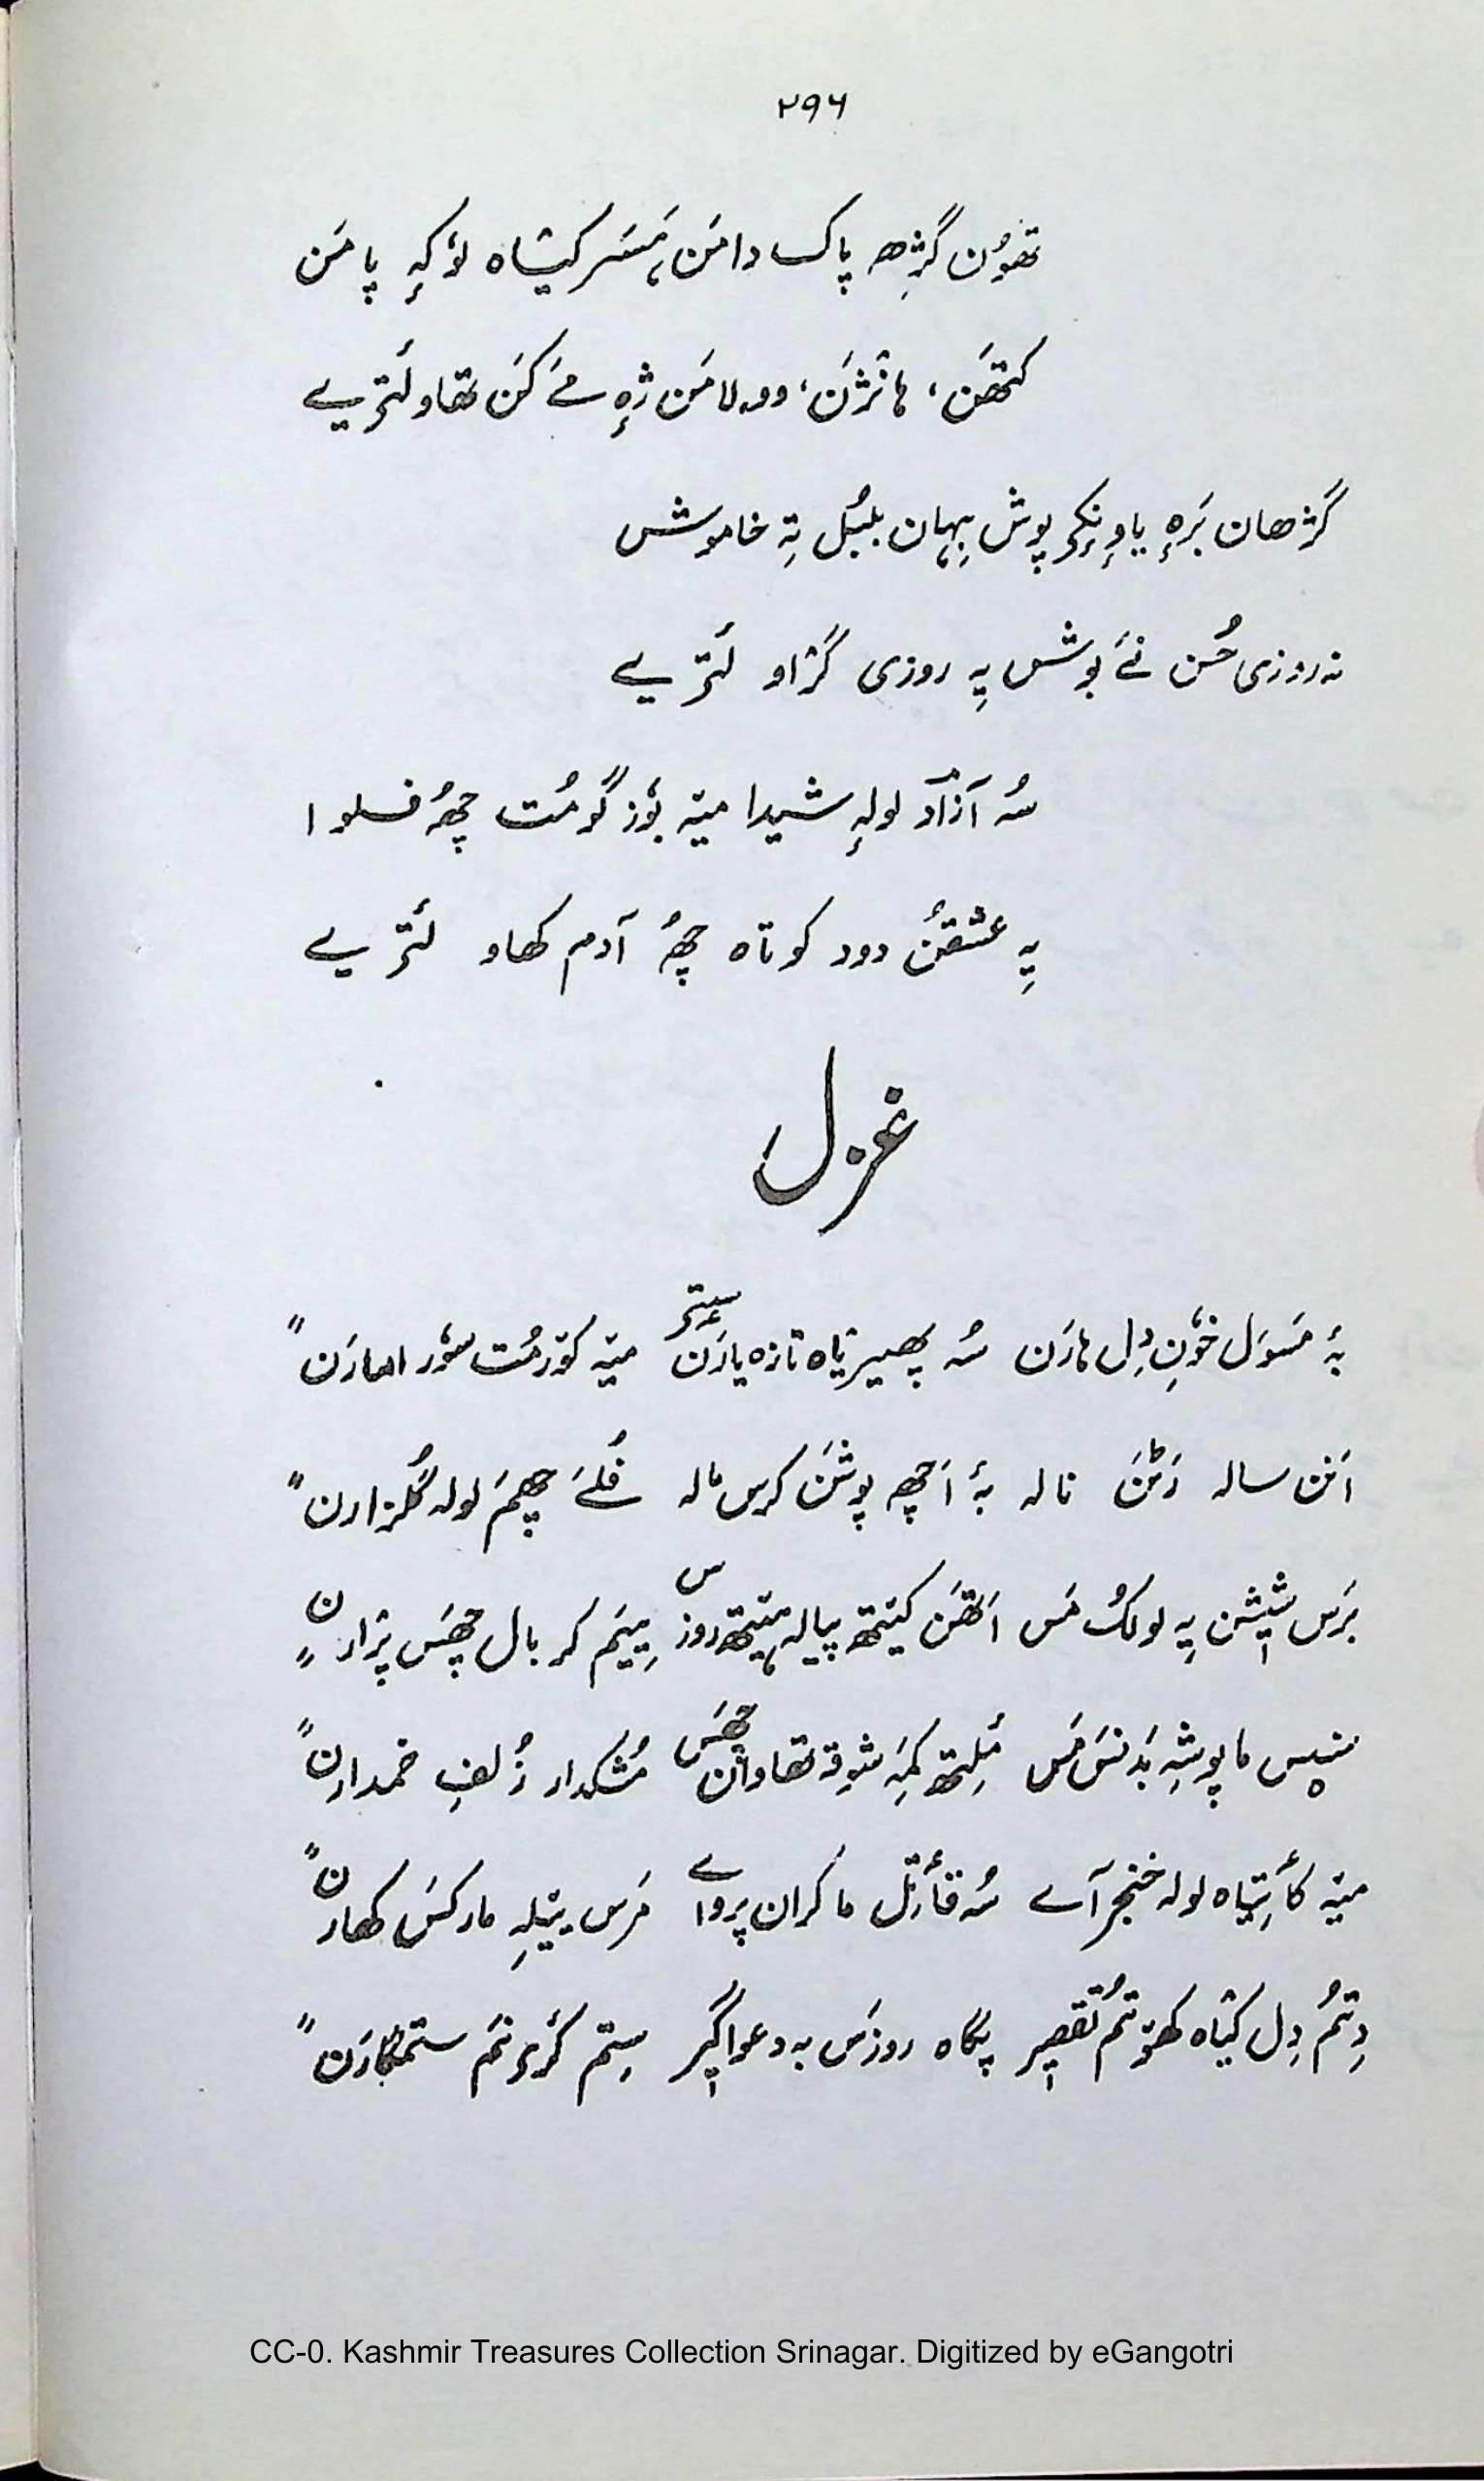 ۲۹۶
تھوُن گژھِ پاک دامَن، مَسَر کیشاہ لوٗکہِ پامَن
کتھَن، ہانژَن، وولامَن ژہِ مےَ کَن تھاو لَتیے
گژھان بَرہِ یاوٕنکہِ پوش بِہان بلبُل تہِ خاموش
نہ روزی حُسن نےَ بوش یہِ روزی گژاو لَتیے
سُہ آزاد لولہِ شیدا میہ بوٗز گومُت چھُہ فلوا
یہِ عشقُن دود کوتاہ چھُہ آدم کھاو لَتیے
غزل
بہٕ مَسوَل خوٗنِ دِل ہارَن سُہ پھیرناہ تازہ یارَن سیتی میہ کوٚرمُت سوٗر امارَن ؍؍
اَنَن سالہ رَٹَن نالہ بہٕ اَچھِ پوشَن کرس مالہ پھُلےَ چھمَ لولہ گُلزارن ؍؍
بَرَس شیشن یہِ لولُک مَس اَتھَن کیتھ پیالہ ہیتھ روزس یِیَم کر بال چھَس پرارن ؍؍
پوشہِ بَدنَس مَس مٔلِتھ کمہِ شوقہ تھاوان چھَس مُشکدار زُلفِ خمدارن ؍؍
میہ کأتیاہ لولہ خنجر آے سُہ قأتل ما کران پرواے مَرَس ییلہِ مارکَس کھارن ؍؍
دِتمُ دِل کیاہ کھوٚتمُ تقصیر پگاہ روزَس بہ دعواگیر سِتم کٔرینَم ستمگارَن ؍؍
CC-0. Kashmir Treasures Collection Srinagar. Digitized by eGangotri